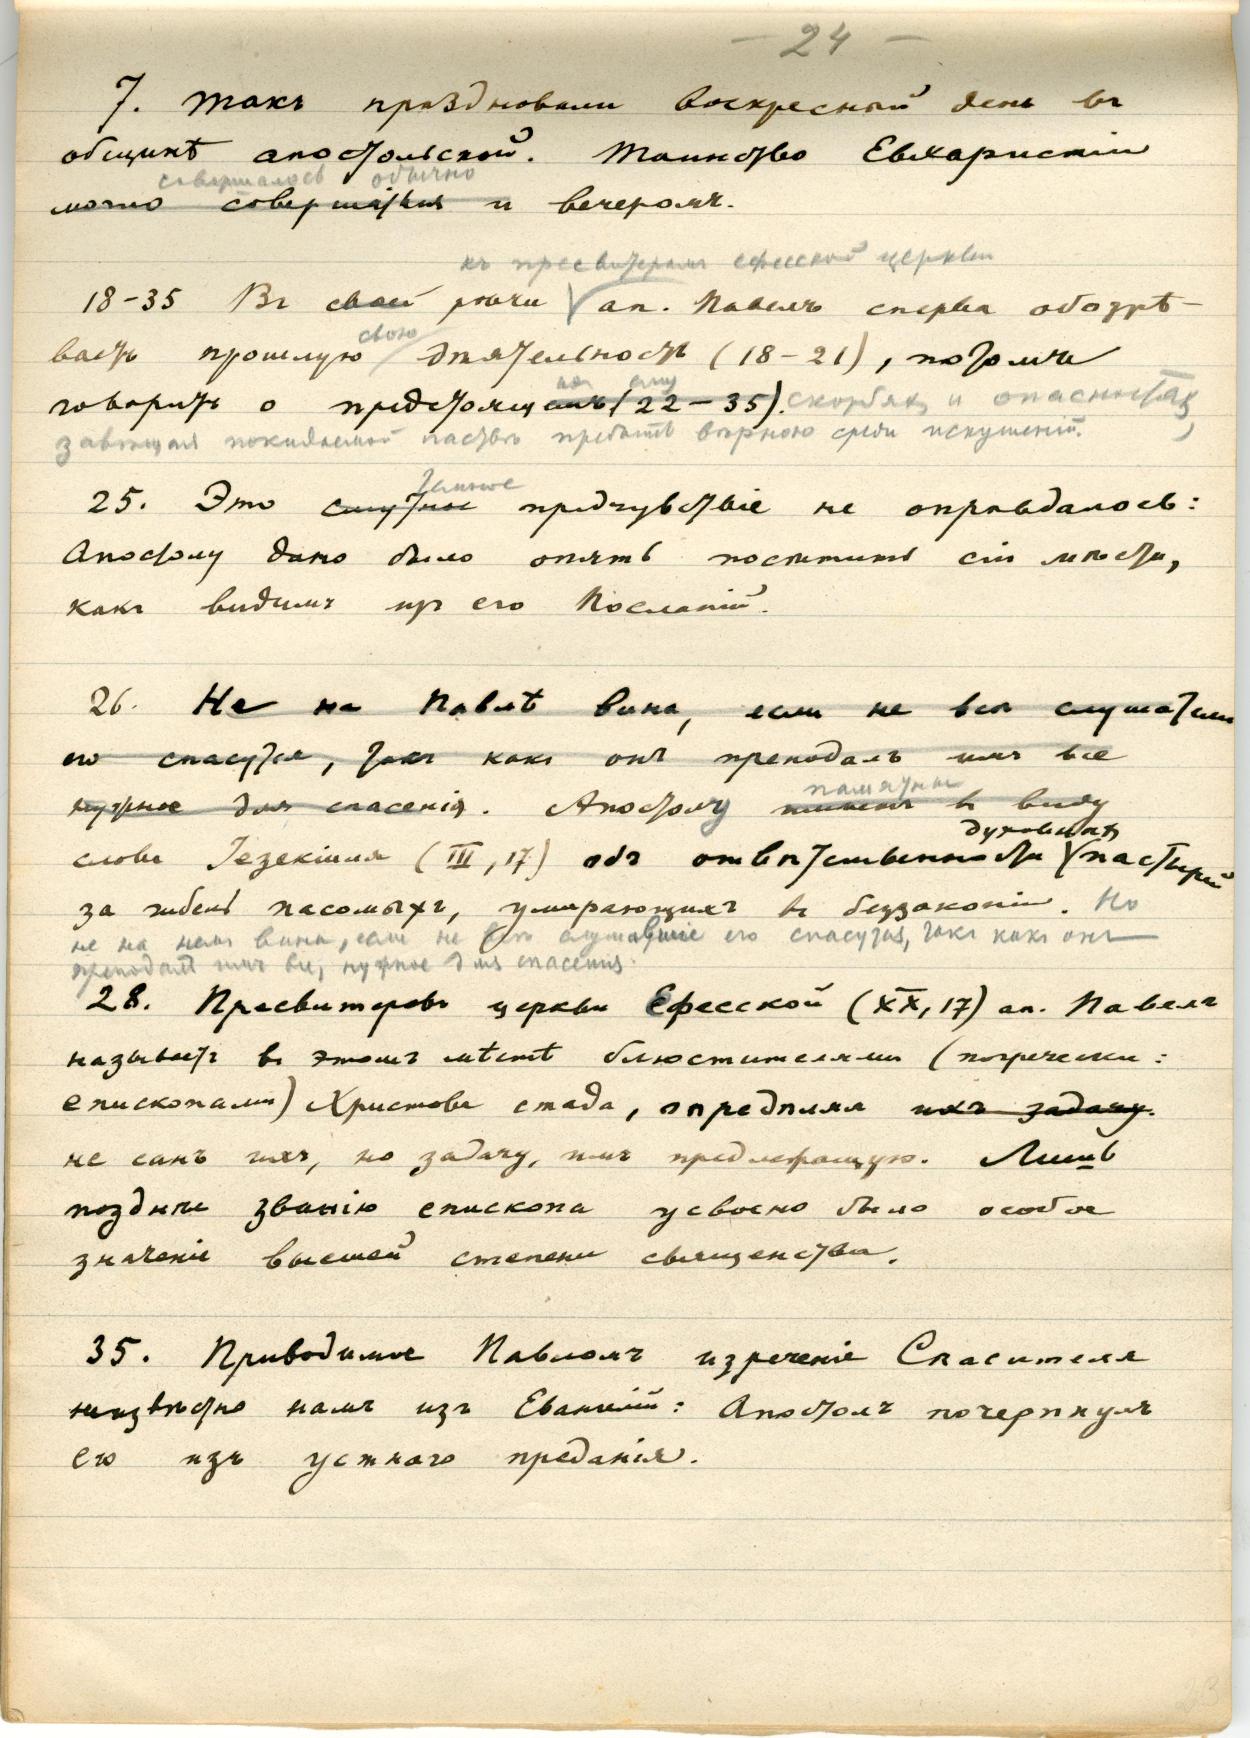 — 24 —
7. Такъ праздновали воскресный день въ
общинѣ апостольской. Таинство Евхаристіи
совершалось обычно
могло совершаться и вечеромъ.
къ пресвитерамъ ефесской церкви
18-35 Въ своей рѣчи ап. Павелъ сперва обозрѣ-
свою
ваетъ прошлую дѣятельность (18-21), потомъ
говоритъ о предстоящихъ (22-35). скорбяхъ и опасностяхъ,
завѣщая покидаемой паствѣ пребыть вѣрною среди искушеній.
темное
25. Это смутное предчувствіе не оправдалось:
Апостолу дано было опять посѣтить сіи мѣста,
какъ видимъ изъ его Посланій.
26. Не на Павлѣ вина, если не всѣ слушатели
его спасутся, такъ какъ онъ преподалъ имъ все
нужное для спасенія. Апостолу
памятны
въ виду
духовныхъ
слова Іезекіиля (III, 17) объ отвѣтственности пастырей
за гибель пасомыхъ, умирающихъ въ беззаконіи. Но
не на немъ вина, если не всѣ слушавшіе его спасутся, такъ какъ онъ
преподалъ имъ все, нужное для спасенія.
28. Пресвитеровъ церкви Ефесской (XX, 17) ап. Павелъ
называетъ въ этомъ мѣстѣ блюстителями (погречески:
епископами) Христова стада, опредѣляя ихъ задачу.
не санъ ихъ, но задачу, имъ предлежащую. Лишь
позднѣе званію епископа усвоено было особое
значеніе высшей степени священства.
35. Приводимое Павломъ изреченіе Спасителя
неизвѣстно намъ изъ Евангелій: Апостолъ почерпнулъ
его изъ устнаго преданія.
23